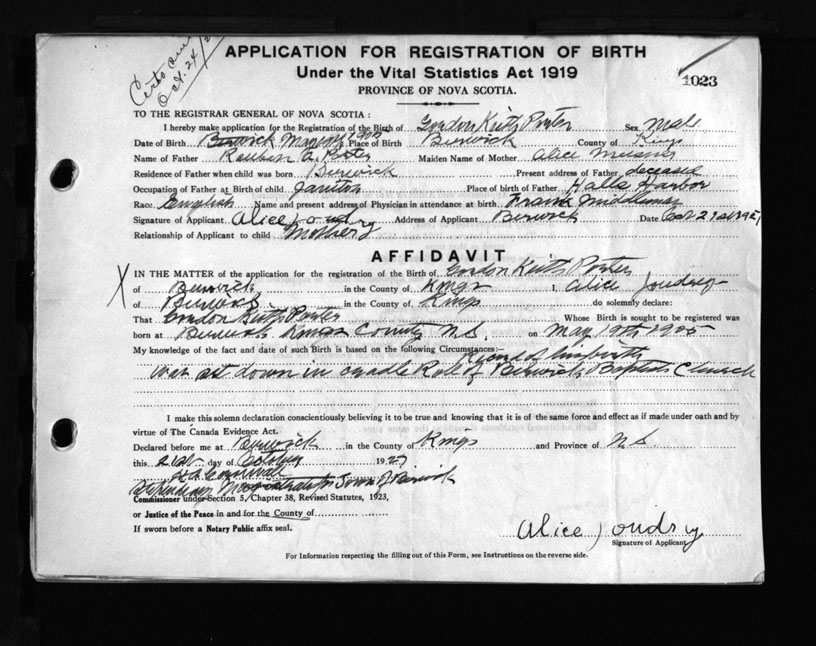 Oct. 24/2
APPLICATION FOR REGISTRATION OF BIRTH
Under the Vital Statistics Act 1919
1023
PROVINCE OF NOVA SCOTIA.
TO THE REGISTRAR GENERAL OF NOVA SCOTIA :
I hereby make application for the Registration of the Birth of Gordon Keith Porter Sex Male
Date of Birth May 19th 1905 Place of Birth Berwick County of Kings
Name of Father Reuben A. Porter Maiden Name of Mother Alice
Residence of Father when child was born Berwick Present address of Father deceased
Occupation of Father at Birth of child Janitor Place of birth of Father Halls Harbor
Race English Name and present address of Physician in attendance at birth Frank Middlemas
Signature of Applicant Alice Joudry Address of Applicant Berwick Date Oct 21st 1927
Relationship of Applicant to child Mother
AFFIDAVIT
X IN THE MATTER of the application for the registration of the Birth of Gordon Keith Porter
of Berwick in the County of Kings I, Alice Joudrey
of Berwick in the County of Kings do solemnly declare:
That Gordon Keith Porter Whose Birth is sought to be registered was
born at Berwick Kings County N.S. on May 19th 1905
My knowledge of the fact and date of such Birth is based on the following Circumstances:— Record of his birth
was set down in cradle Role of Berwick Baptist Church
I make this solemn declaration conscientiously believing it to be true and knowing that it is of the same force and effect as if made under oath and by
virtue of The Canada Evidence Act.
Declared before me at Berwick in the County of Kings and Province of N.S.
this 21st day of October 1927
Stipendiary Magistrate for Town of Berwick
Commissioner under Section 5, Chapter 38, Revised Statutes, 1923,
or Justice of the Peace in and for the County of
If sworn before a Notary Public affix seal.
Alice Joudry
Signature of Applicant
For Information respecting the filling out of this Form, see Instructions on the reverse side.